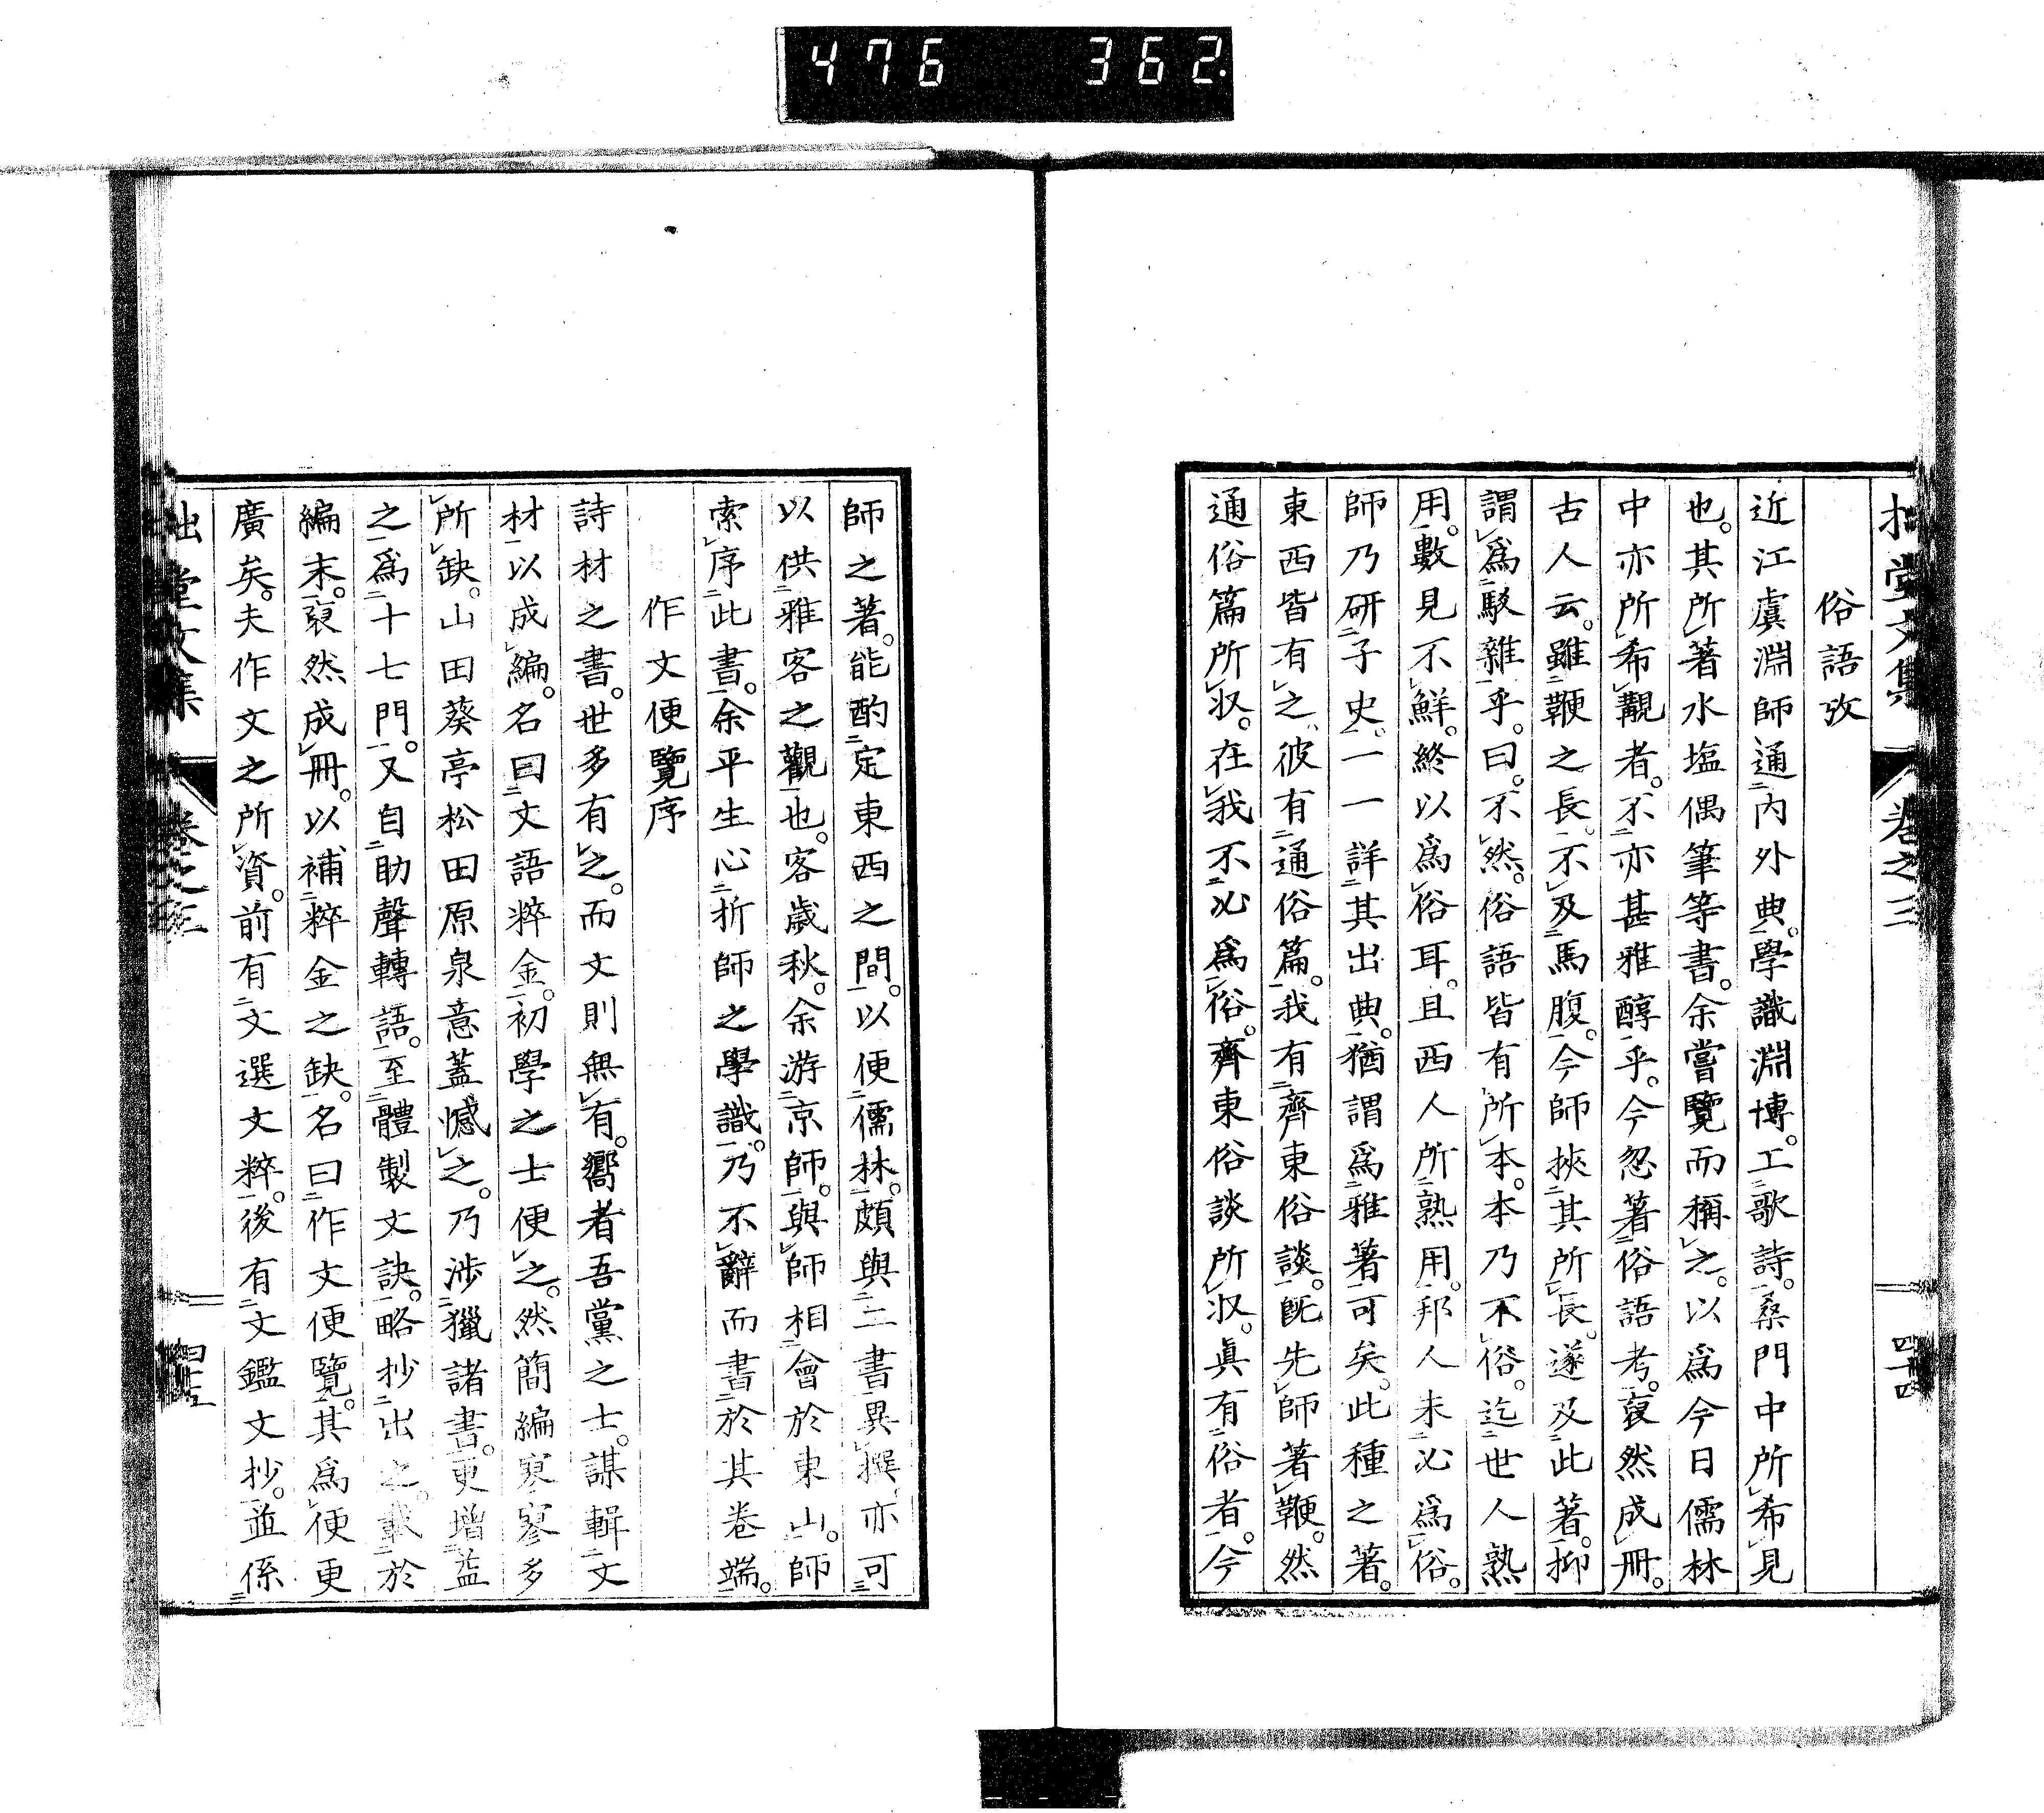 476 362.
拙堂文集 卷之三 四十四
俗語攷
近江虞淵師通内外典。學識淵博。工歌詩。桑門中所希見
也。其所著水塩偶筆等書。余嘗覽而稱之。以爲今日儒林
中亦所希覯者。不亦甚雅醇乎。今忽著俗語考。裒然成冊。
古人云。雖鞭之長。不及馬腹。今師挾其所長。遂及此著。抑
謂爲駁雜乎。曰。不然。俗語皆有所本。本乃不俗。迄世人熟
用。數見不鮮。終以爲俗耳。且西人所熟用。邦人未必爲俗。
師乃研子史。一一詳其出典。猶謂爲雅著可矣。此種之著。
東西皆有之。彼有通俗篇。我有齊東俗談。既先師著鞭。然
通俗篇所収。在我不必爲俗。齊東俗談所収。眞有俗者。今
師之著。能酌定東西之間。以便儒林。頗與二書異撰。亦可
以供雅客之觀也。客歲秋。余游京師。與師相會於東山。師
索序此書。余平生心折師之學識。乃不辭而書於其卷端。
作文便覽序
詩材之書。世多有之。而文則無有。嚮者吾黨之士。謀輯文
材以成編。名曰文語粹金。初學之士便之。然簡編寥寥多
所缺。山田葵亭松田原泉意蓋憾之。乃渉獵諸書。更增益
之爲十七門。又自助聲轉語。至體製文訣。略抄出之。載於
編末。裒然成冊。以補粹金之缺。名曰作文便覽。其爲便更
廣矣。夫作文之所資。前有文選文粹。後有文鑑文抄。並係
拙堂文集 卷之三 四十五